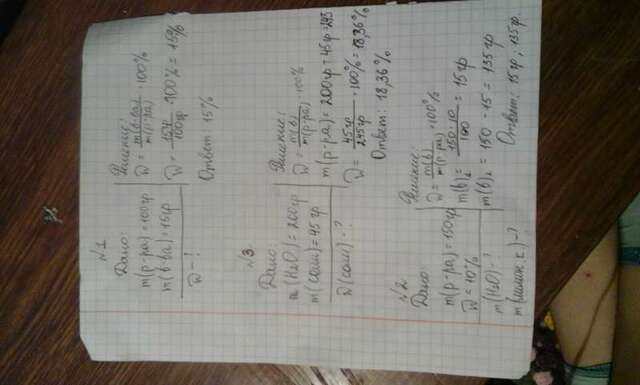 №1
Дано:
m(р-ра) = 100гр
m(в-ва) = 15гр
ω - ?
Решение:
ω = m(в-ва) / m(р-ра) · 100%
ω = 15гр / 100гр · 100% = 15%
Ответ: 15%
№3
Дано:
m(H₂O) = 200гр
m(соли) = 45гр
ω(соли) - ?
Решение:
ω = m(в) / m(р-ра) · 100%
m(р-ра) = 200гр + 45гр = 245
ω = 45гр / 245гр · 100% = 18,36%
Ответ: 18,36%
№2
Дано:
m(р-ра) = 150гр
ω = 10%
m(H₂O) - ?
m(лимон. к) - ?
Решение:
ω = m(в) / m(р-ра) · 100%
m(в)₂ = 150·10 / 100 = 15гр
m(в)₁ = 150 - 15 = 135гр
Ответ: 15гр; 135гр